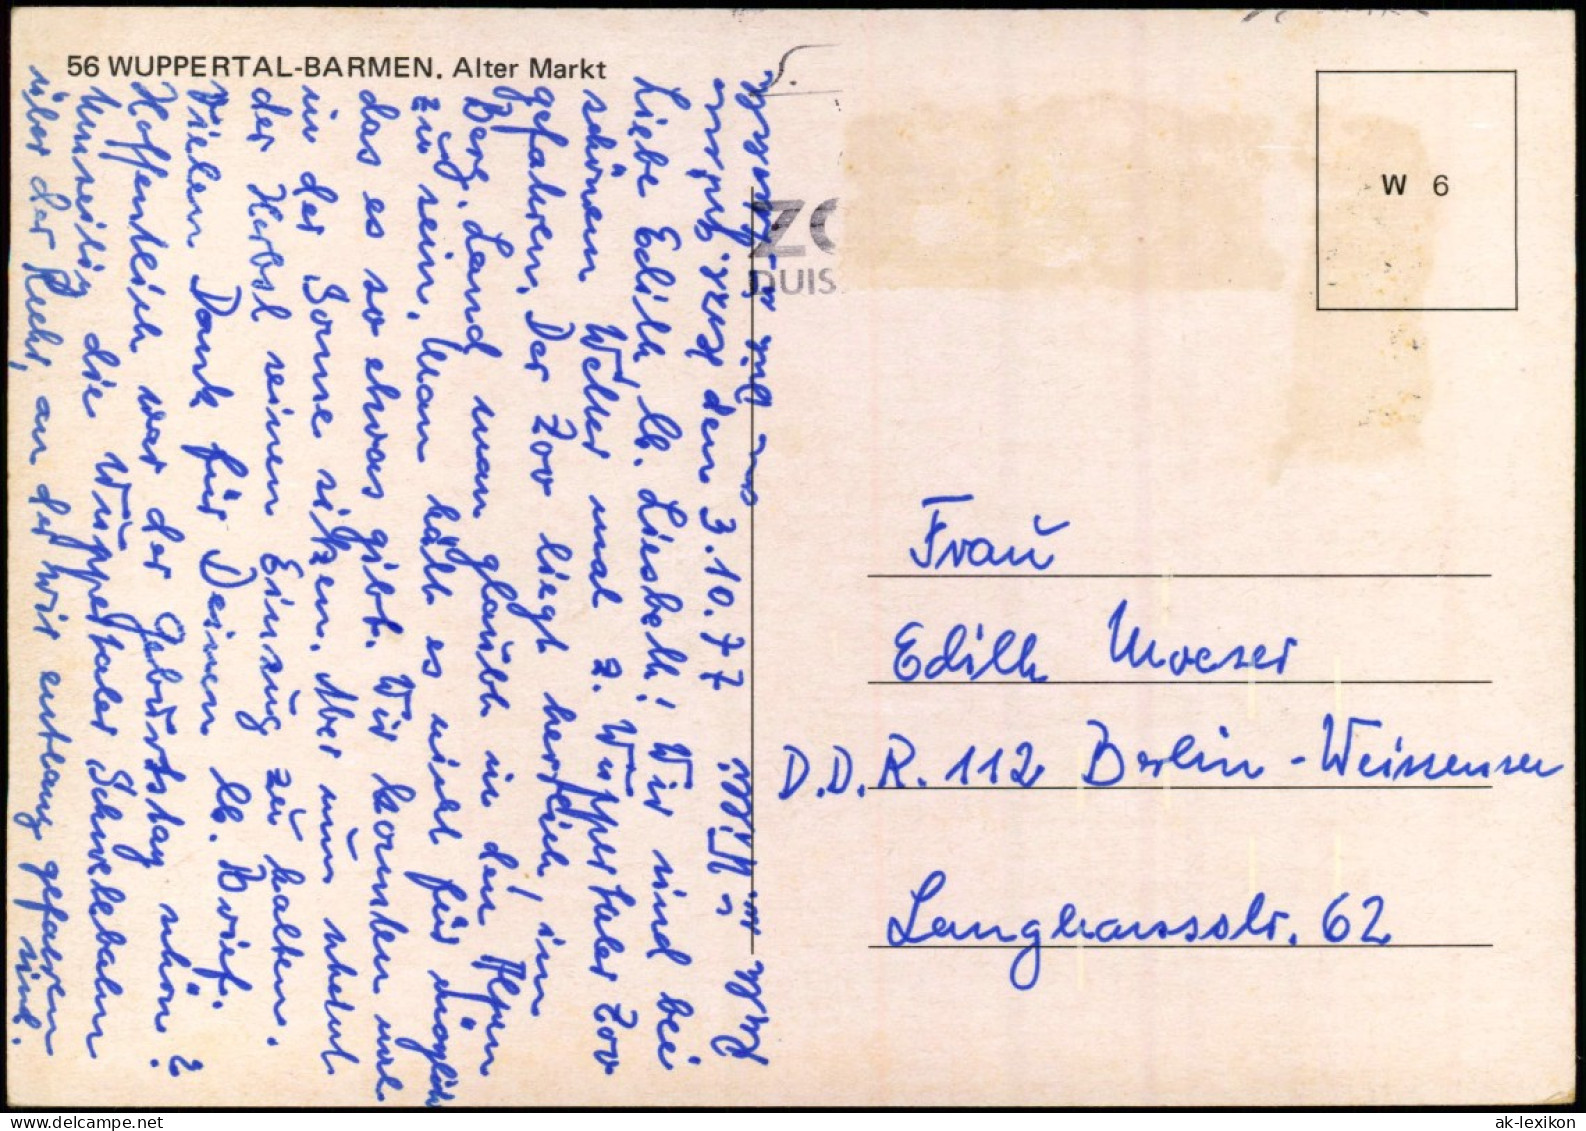 56 WUPPERTAL-BARMEN. Alter Markt
W 6
ZO
DUIS
den 3.10.77
Liebe Edith, lb. Liesbeth! Wir sind bei
schönem Wetter mal z. Wuppertaler Zoo
gefahren. Der Zoo liegt herrlich, im
Berg. Land, man glaubt in den Alpen
zu sein. Man hält es nicht für möglich
das es so etwas gibt. Wir konnten mal
in der Sonne sitzen. Aber nun scheint
der Herbst seinen Einzug zu halten.
Vielen Dank für Deinen lb. Brief.
Hoffentlich war der Geburtstag schön?
Umseitig die Wuppertaler Schwebebahn
über der
an der wir entlang gefahren sind.
Frau
Edith Moeser
D.D.R. 112 Berlin-Weissensee
Langhansstr. 62
ak-lexikon